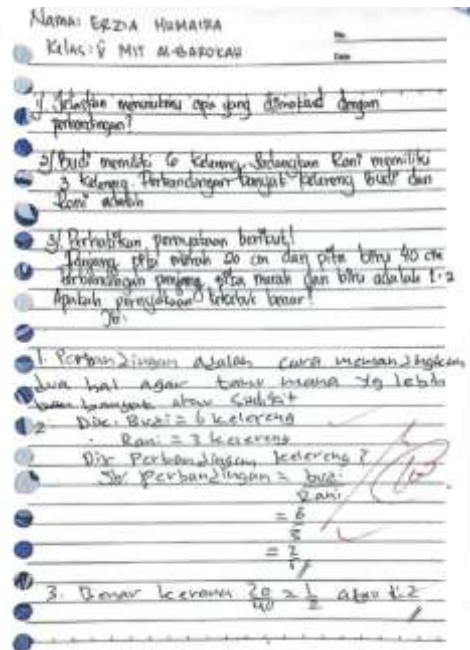 Nama: ERZIA HUMAIRA
Kelas: V MIT Al-BAROKAH
No.
Date
1) Jelaskan menurutmu apa yang dimaksud dengan
perbandingan?
2) Budi memiliki 6 kelereng. Sedangkan Rani memiliki
3 kelereng. Perbandingan banyak kelereng Budi dan
Rani adalah
3) Perhatikan pernyataan berikut!
Panjang pita merah 20 cm dan pita biru 40 cm
Perbandingan panjang pita merah dan biru adalah 1:2
Apakah pernyataan tersebut benar?
Jb:
1. Perbandingan adalah cara membandingkan
dua hal agar tahu mana yg lebih
banyak atau sedikit
2. Dik: Budi = 6 kelereng
Rani = 3 kelereng
Dit: Perbandingan kelereng?
Jb: Perbandingan = budi
Rani
= 6
3
= 2
1
3. Benar kerana 20/40 = 1/2 atau 1:2